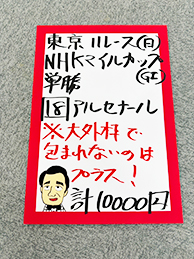 東京11レース(日)
NHKマイルカップ
(GI)
単勝
18アルセナール
※大外枠で
包まれないのは
プラス!
計10000円